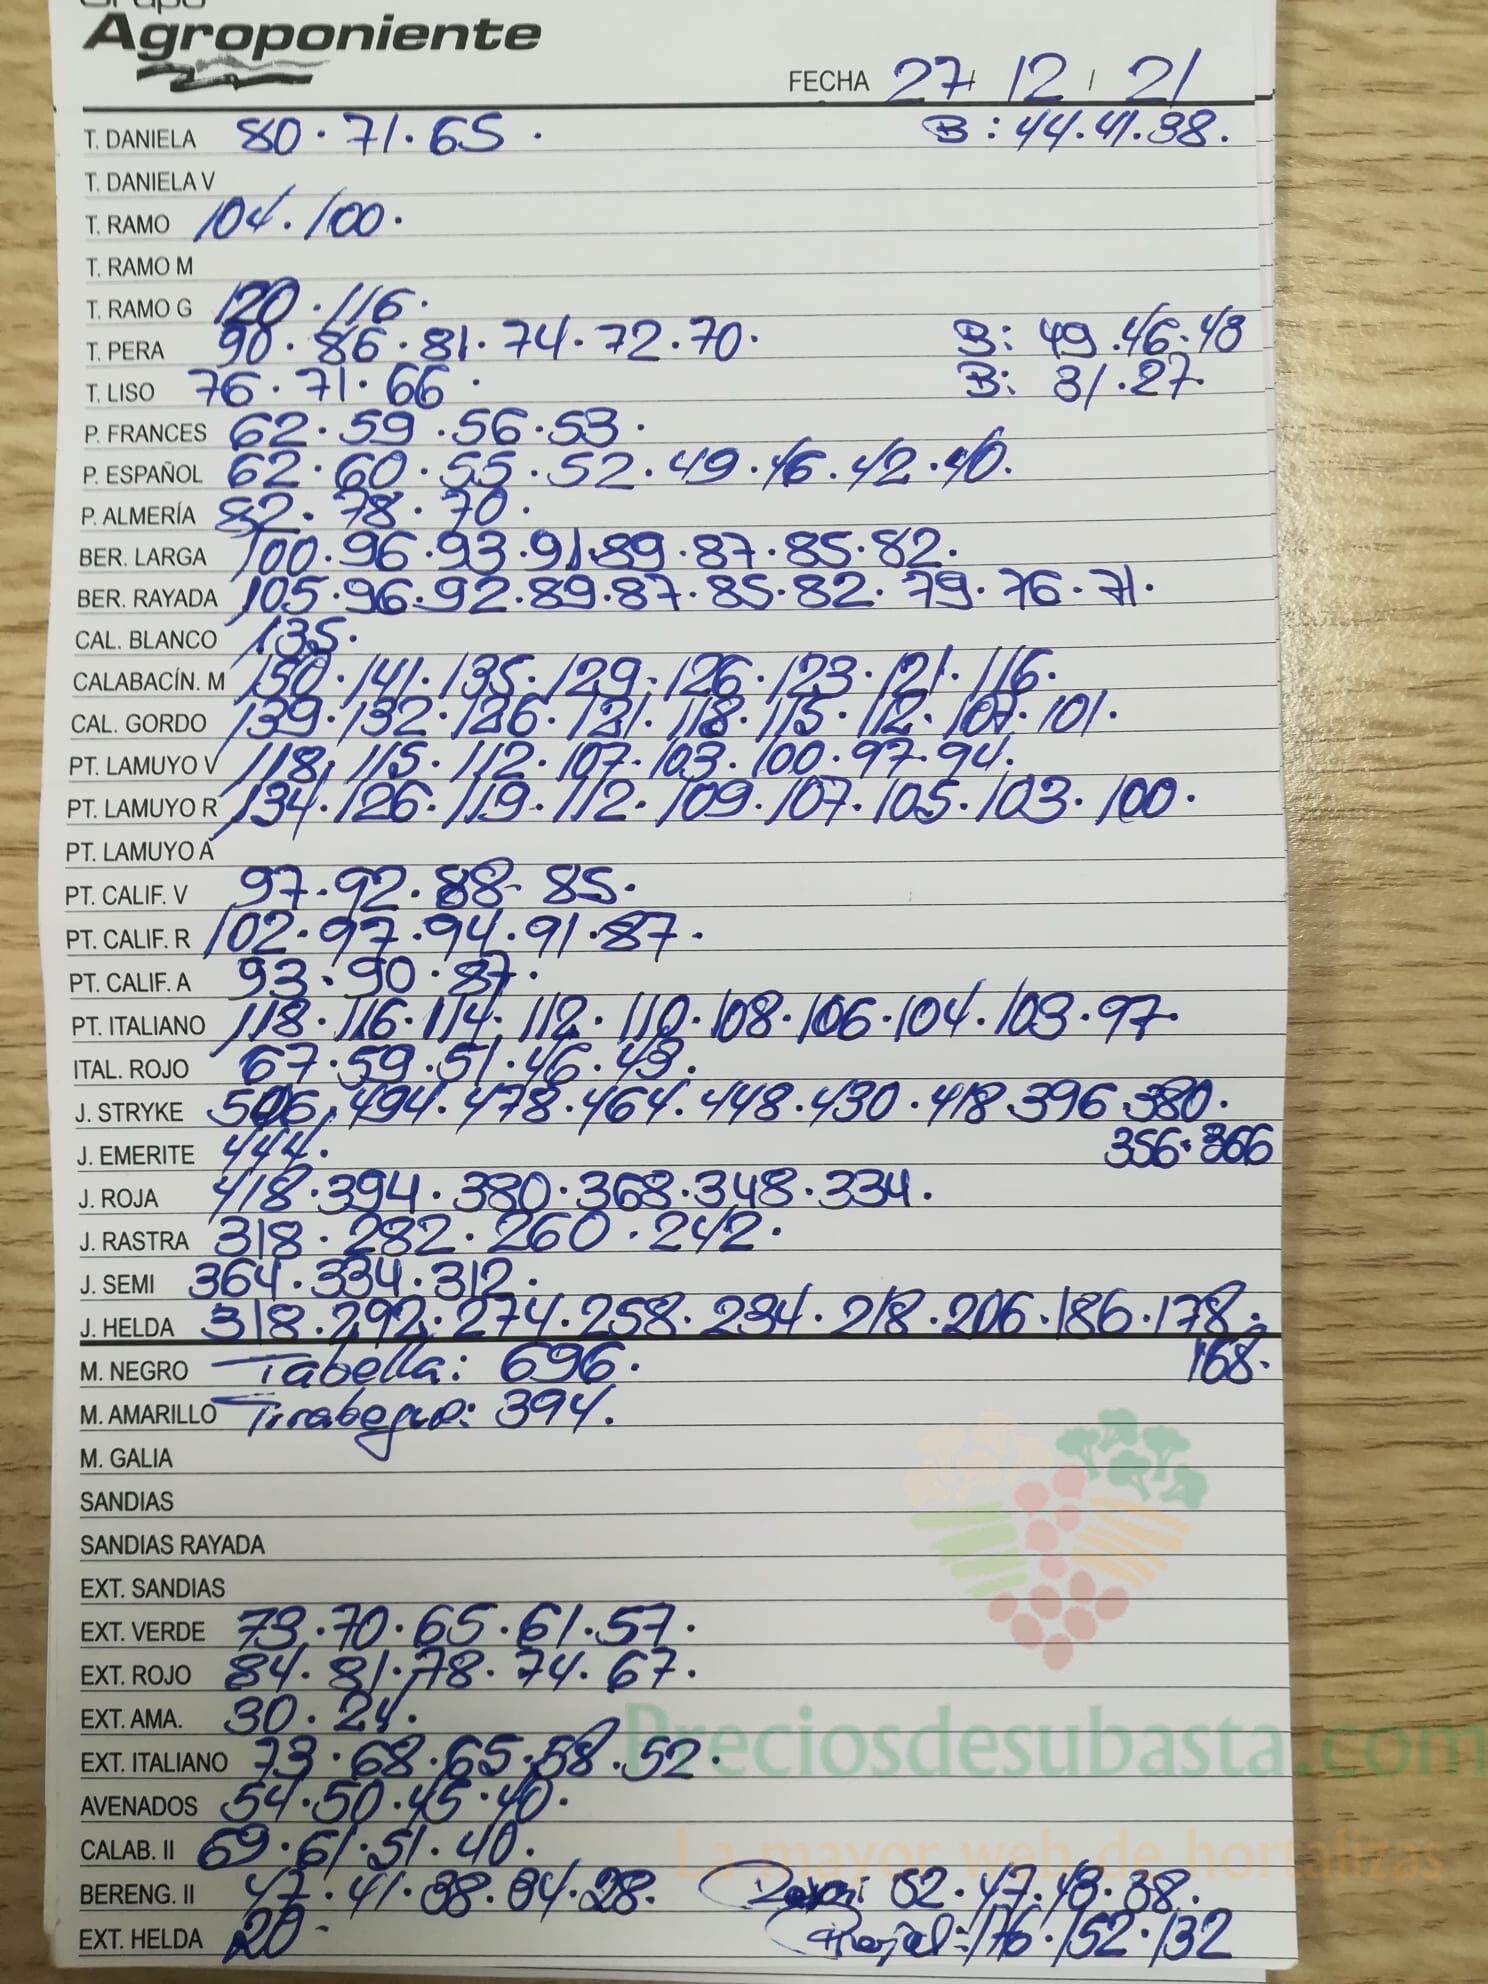 Grupo
Agroponiente
FECHA 27 / 12 / 21
T. DANIELA 80 · 71 · 65 · B: 44 · 41 · 38.
T. DANIELA V
T. RAMO 104 · 100 ·
T. RAMO M
T. RAMO G 120 · 116 ·
T. PERA 90 · 86 · 81 · 74 · 72 · 70 · B: 49 · 46 · 43
T. LISO 76 · 71 · 66 · B: 31 · 27
P. FRANCES 62 · 59 · 56 · 53 ·
P. ESPAÑOL 62 · 60 · 55 · 52 · 49 · 46 · 42 · 40.
P. ALMERÍA 82 · 78 · 70 ·
BER. LARGA 100 · 96 · 93 · 91 · 89 · 87 · 85 · 82.
BER. RAYADA 105 · 96 · 92 · 89 · 87 · 85 · 82 · 79 · 76 · 71 ·
CAL. BLANCO 135 ·
CALABACÍN. M 150 · 141 · 135 · 129 · 126 · 123 · 121 · 116 ·
CAL. GORDO 139 · 132 · 126 · 121 · 118 · 115 · 112 · 107 · 101 ·
PT. LAMUYO V 118 · 115 · 112 · 107 · 103 · 100 · 97 · 94.
PT. LAMUYO R 134 · 126 · 119 · 112 · 109 · 107 · 105 · 103 · 100 ·
PT. LAMUYO A
PT. CALIF. V 97 · 92 · 88 · 85 ·
PT. CALIF. R 102 · 97 · 94 · 91 · 87 ·
PT. CALIF. A 93 · 90 · 87 ·
PT. ITALIANO 118 · 116 · 114 · 112 · 110 · 108 · 106 · 104 · 103 · 97 ·
ITAL. ROJO 67 · 59 · 51 · 46 · 43 ·
J. STRYKE 506 · 494 · 478 · 464 · 448 · 430 · 418 · 396 · 380 ·
J. EMERITE 444 · 356 · 366
J. ROJA 418 · 394 · 380 · 368 · 348 · 334 ·
J. RASTRA 318 · 282 · 260 · 242 ·
J. SEMI 364 · 334 · 312 ·
J. HELDA 318 · 292 · 274 · 258 · 234 · 218 · 206 · 186 · 178 ·
M. NEGRO Tabella: 696 · 168 ·
M. AMARILLO Tirabeque: 394.
M. GALIA
SANDIAS
SANDIAS RAYADA
EXT. SANDIAS
EXT. VERDE 73 · 70 · 65 · 61 · 57 ·
EXT. ROJO 84 · 81 · 78 · 74 · 67 ·
EXT. AMA. 30 · 24 ·
EXT. ITALIANO 73 · 68 · 65 · 58 · 52 ·
Preciosdesubasta.com
AVENADOS 54 · 50 · 45 · 40 ·
CALAB. II 69 · 61 · 51 · 40 ·
La mayor web de hortalizas
BERENG. II 47 · 41 · 38 · 34 · 28 · 52 · 47 · 43 · 38 ·
EXT. HELDA 20 · 176 · 152 · 132